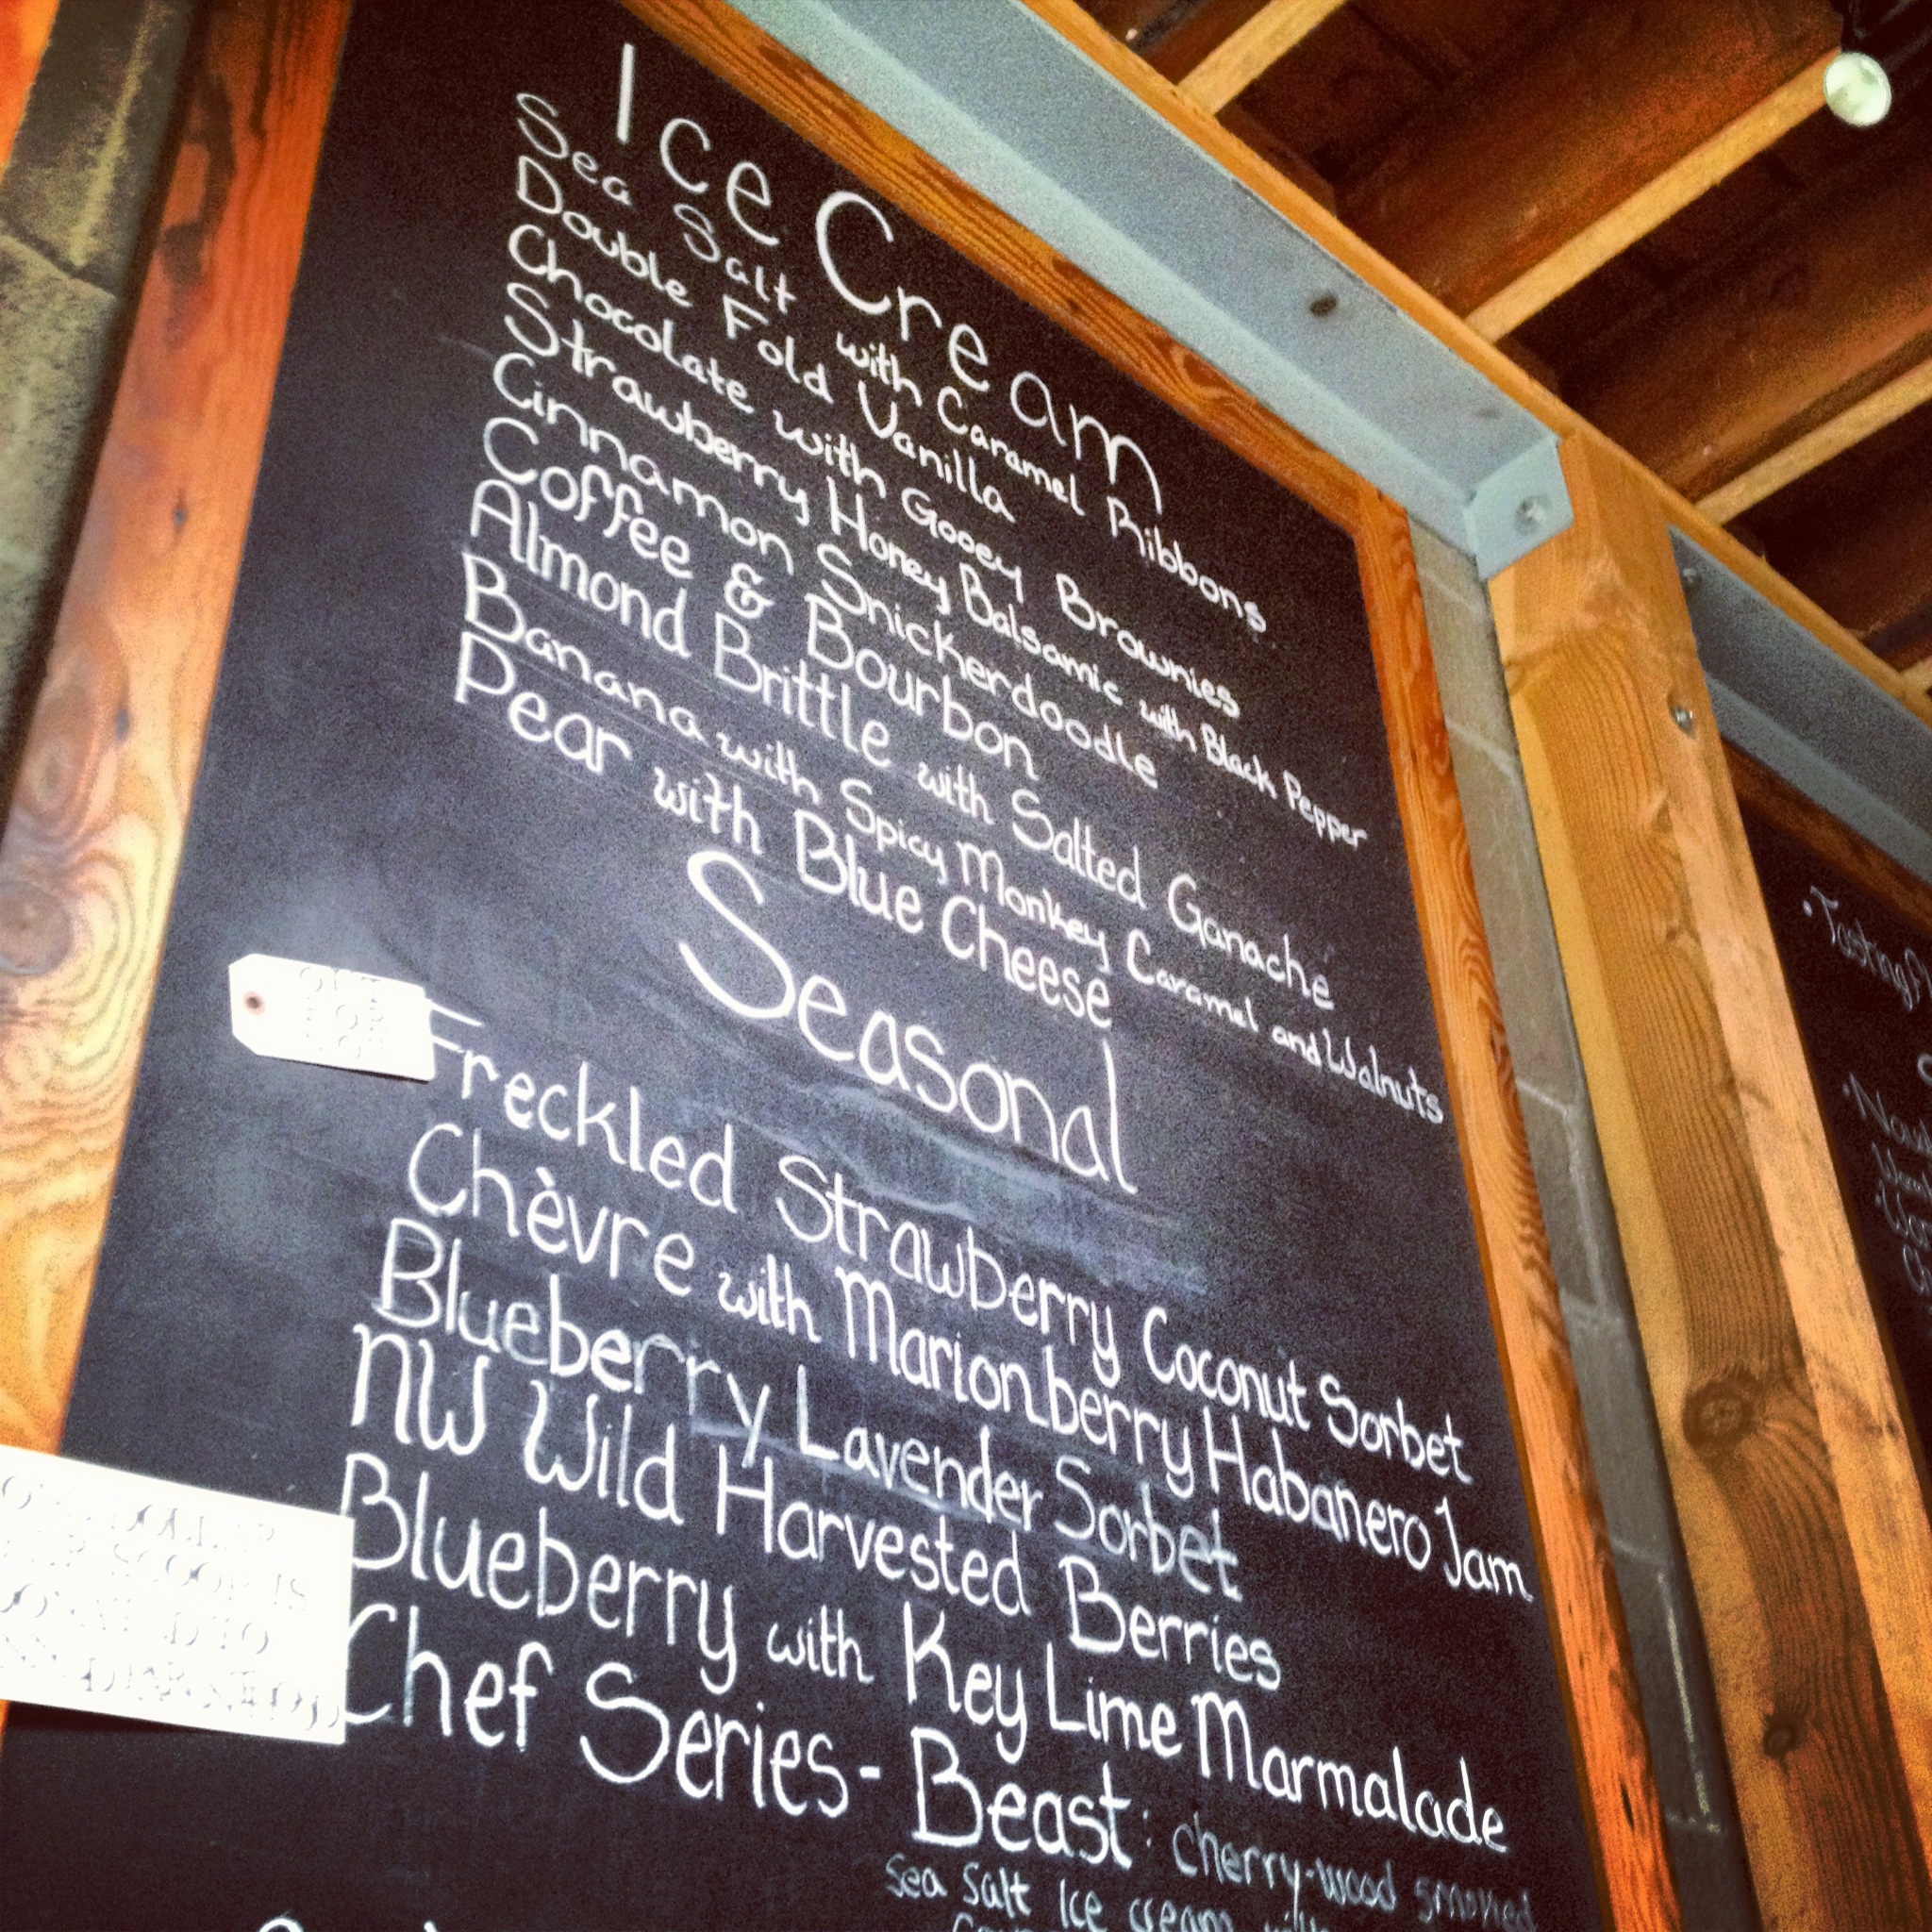 Ice Cream
Sea Salt with Caramel Ribbons
Double Fold Vanilla
Chocolate with Gooey Brownies
Strawberry Honey Balsamic with Black Pepper
Cinnamon Snickerdoodle
Coffee & Bourbon
Almond Brittle with Salted Ganache
Banana with Spicy Monkey Caramel and Walnuts
Pear with Blue Cheese
Seasonal
Freckled Strawberry Coconut Sorbet
Chèvre with Marionberry Habanero Jam
Blueberry Lavender Sorbet
NW Wild Harvested Berries
Blueberry with Key Lime Marmalade
Chef Series - Beast: cherry-wood smoked
Sea Salt Ice cream